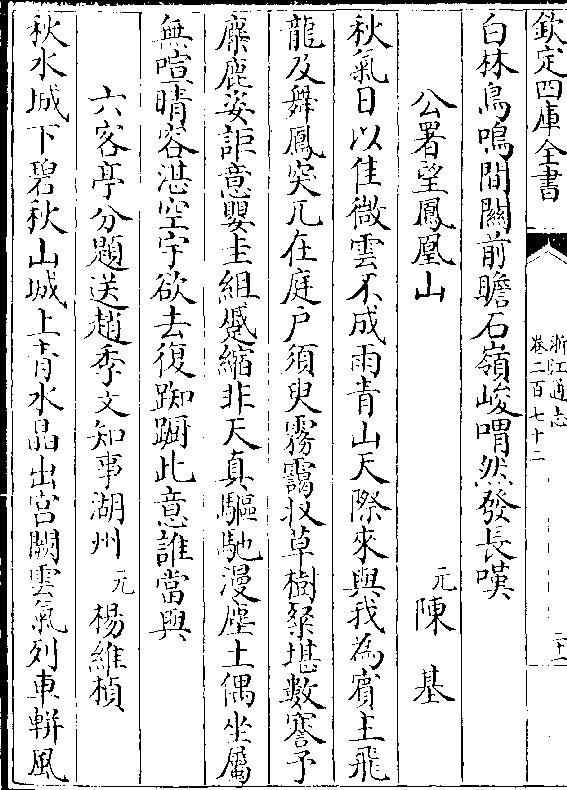 欽定四庫全書
浙江通志
卷二百七十二
二十一
白林鳥鳴間關前瞻石嶺峻喟然發長嘆
公署望鳳凰山 元 陳基
秋氣日以佳微雲不成雨青山天際來與我為賓主飛
龍及舞鳳突兀在庭户須臾霧靄收草樹粲堪數謇予
麋鹿姿詎意嬰圭組蹙縮非天真驅馳漫塵土偶坐屬
無喧晴容湛空宇欲去復踟蹰此意誰當與
六客亭分題送趙季文知事湖州 元 楊維楨
秋水城下碧秋山城上青水晶出宫闕雲氣列車軿風